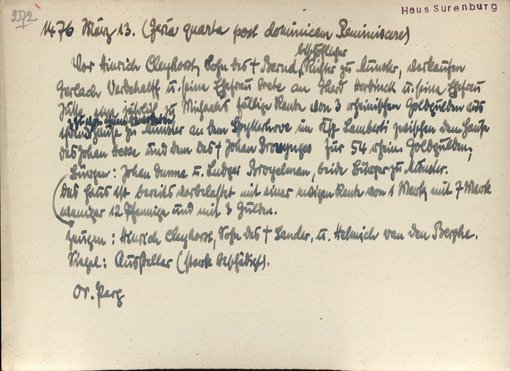 272
Haus Surenburg
1476 März 13. (feria quarta post dominicam Reminiscere)
Vor Hinrich Cleyhorst, Sohn des † Bernd, bischöflicher Richter zu Münster, verkaufen
Gerlach u. seine Ehefrau an Gherd u. seine Ehefrau
eine jährlich zu Michaelis fällige Rente von 3 rheinischen Goldgulden aus
zu Münster an dem im Ksp. Lamberti zwischen dem Hause
des Johan und dem des † Johan für 54 rhein. Goldgulden,
Bürgen: Johan u. Ludger beide Bürger zu Münster.
(Das Haus ist bereits vorbelastet mit einer ewigen Rente von 1 Mark, mit 7 Mark
weniger 12 Pfennige und mit 3 Gulden.
Zeugen: Hinrich Cleyhorst, Sohn des † Sander, u. Helmich van den Berghe.
Siegel: Aussteller (stark beschädigt).
Or. Perg